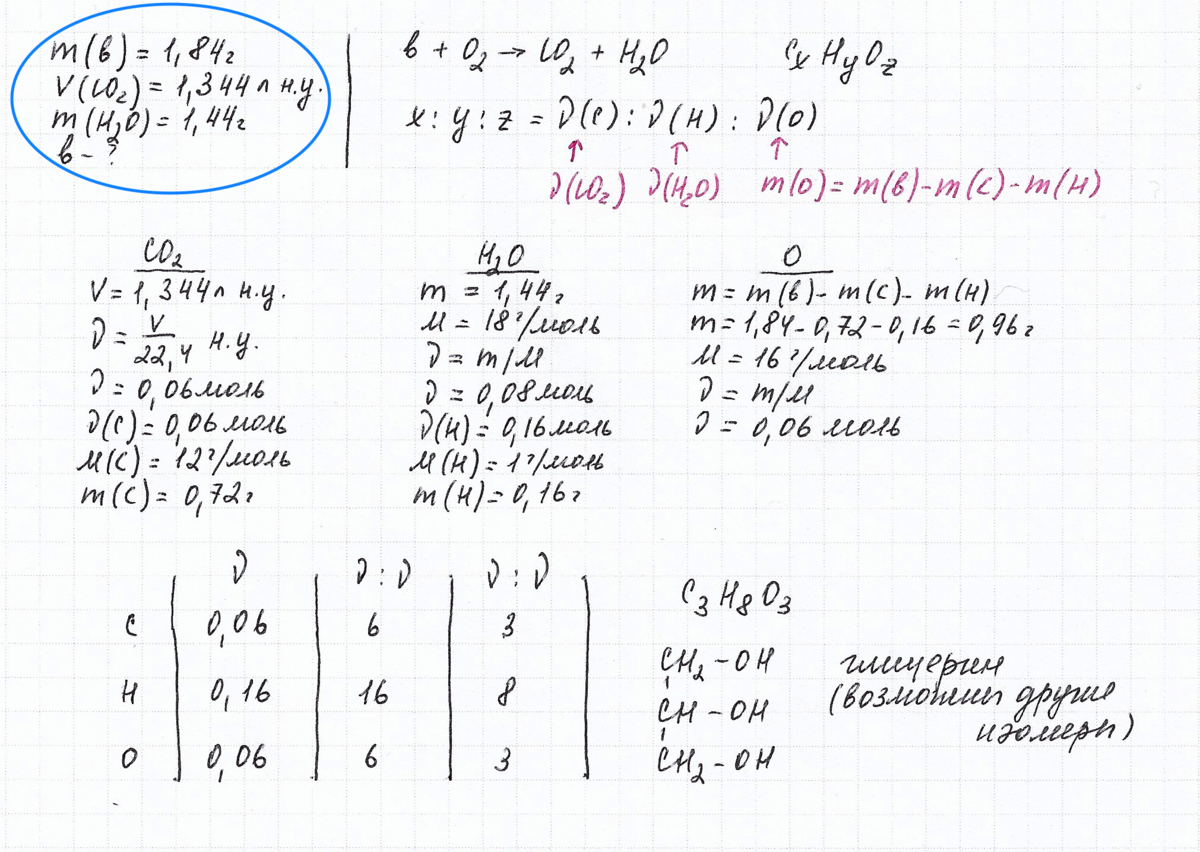 m(в) = 1,84г
V(CO₂) = 1,344л н.у.
m(H₂O) = 1,44г
в - ?
в + O₂ → CO₂ + H₂O CₓHyOz
x : y : z = ν(C) : ν(H) : ν(O)
↑ ↑ ↑
ν(CO₂) ν(H₂O) m(O) = m(в) - m(C) - m(H)
CO₂
V = 1,344л н.у.
ν = V/22,4 н.у.
ν = 0,06моль
ν(C) = 0,06моль
M(C) = 12г/моль
m(C) = 0,72г
H₂O
m = 1,44г
M = 18г/моль
ν = m/M
ν = 0,08моль
ν(H) = 0,16моль
M(H) = 1г/моль
m(H) = 0,16г
O
m = m(в) - m(C) - m(H)
m = 1,84 - 0,72 - 0,16 = 0,96г
M = 16г/моль
ν = m/M
ν = 0,06 моль
ν ν : ν ν : ν
C 0,06 6 3
H 0,16 16 8
O 0,06 6 3
C₃H₈O₃
CH₂ - OH
CH - OH
CH₂ - OH
глицерин
(возможны другие
изомеры)